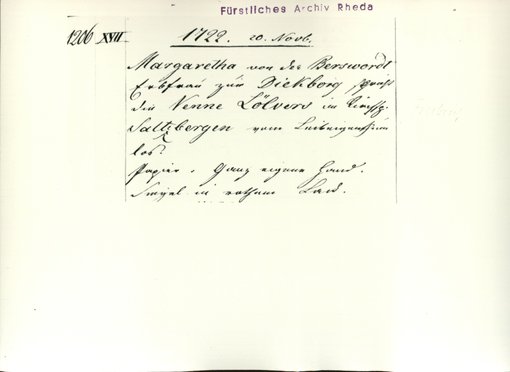 Fürstliches Archiv Rheda
1206 XVII 1722. 20. Novb.
Margaretha von der Berswordt
Erbfrau zur Dieckborg spricht
den Nenne Lölvers im Kirchsp.
Saltzbergen vom Leibeigenthum
los.
Papier. Ganz eigene Hand.
Siegel in rothem Lack.